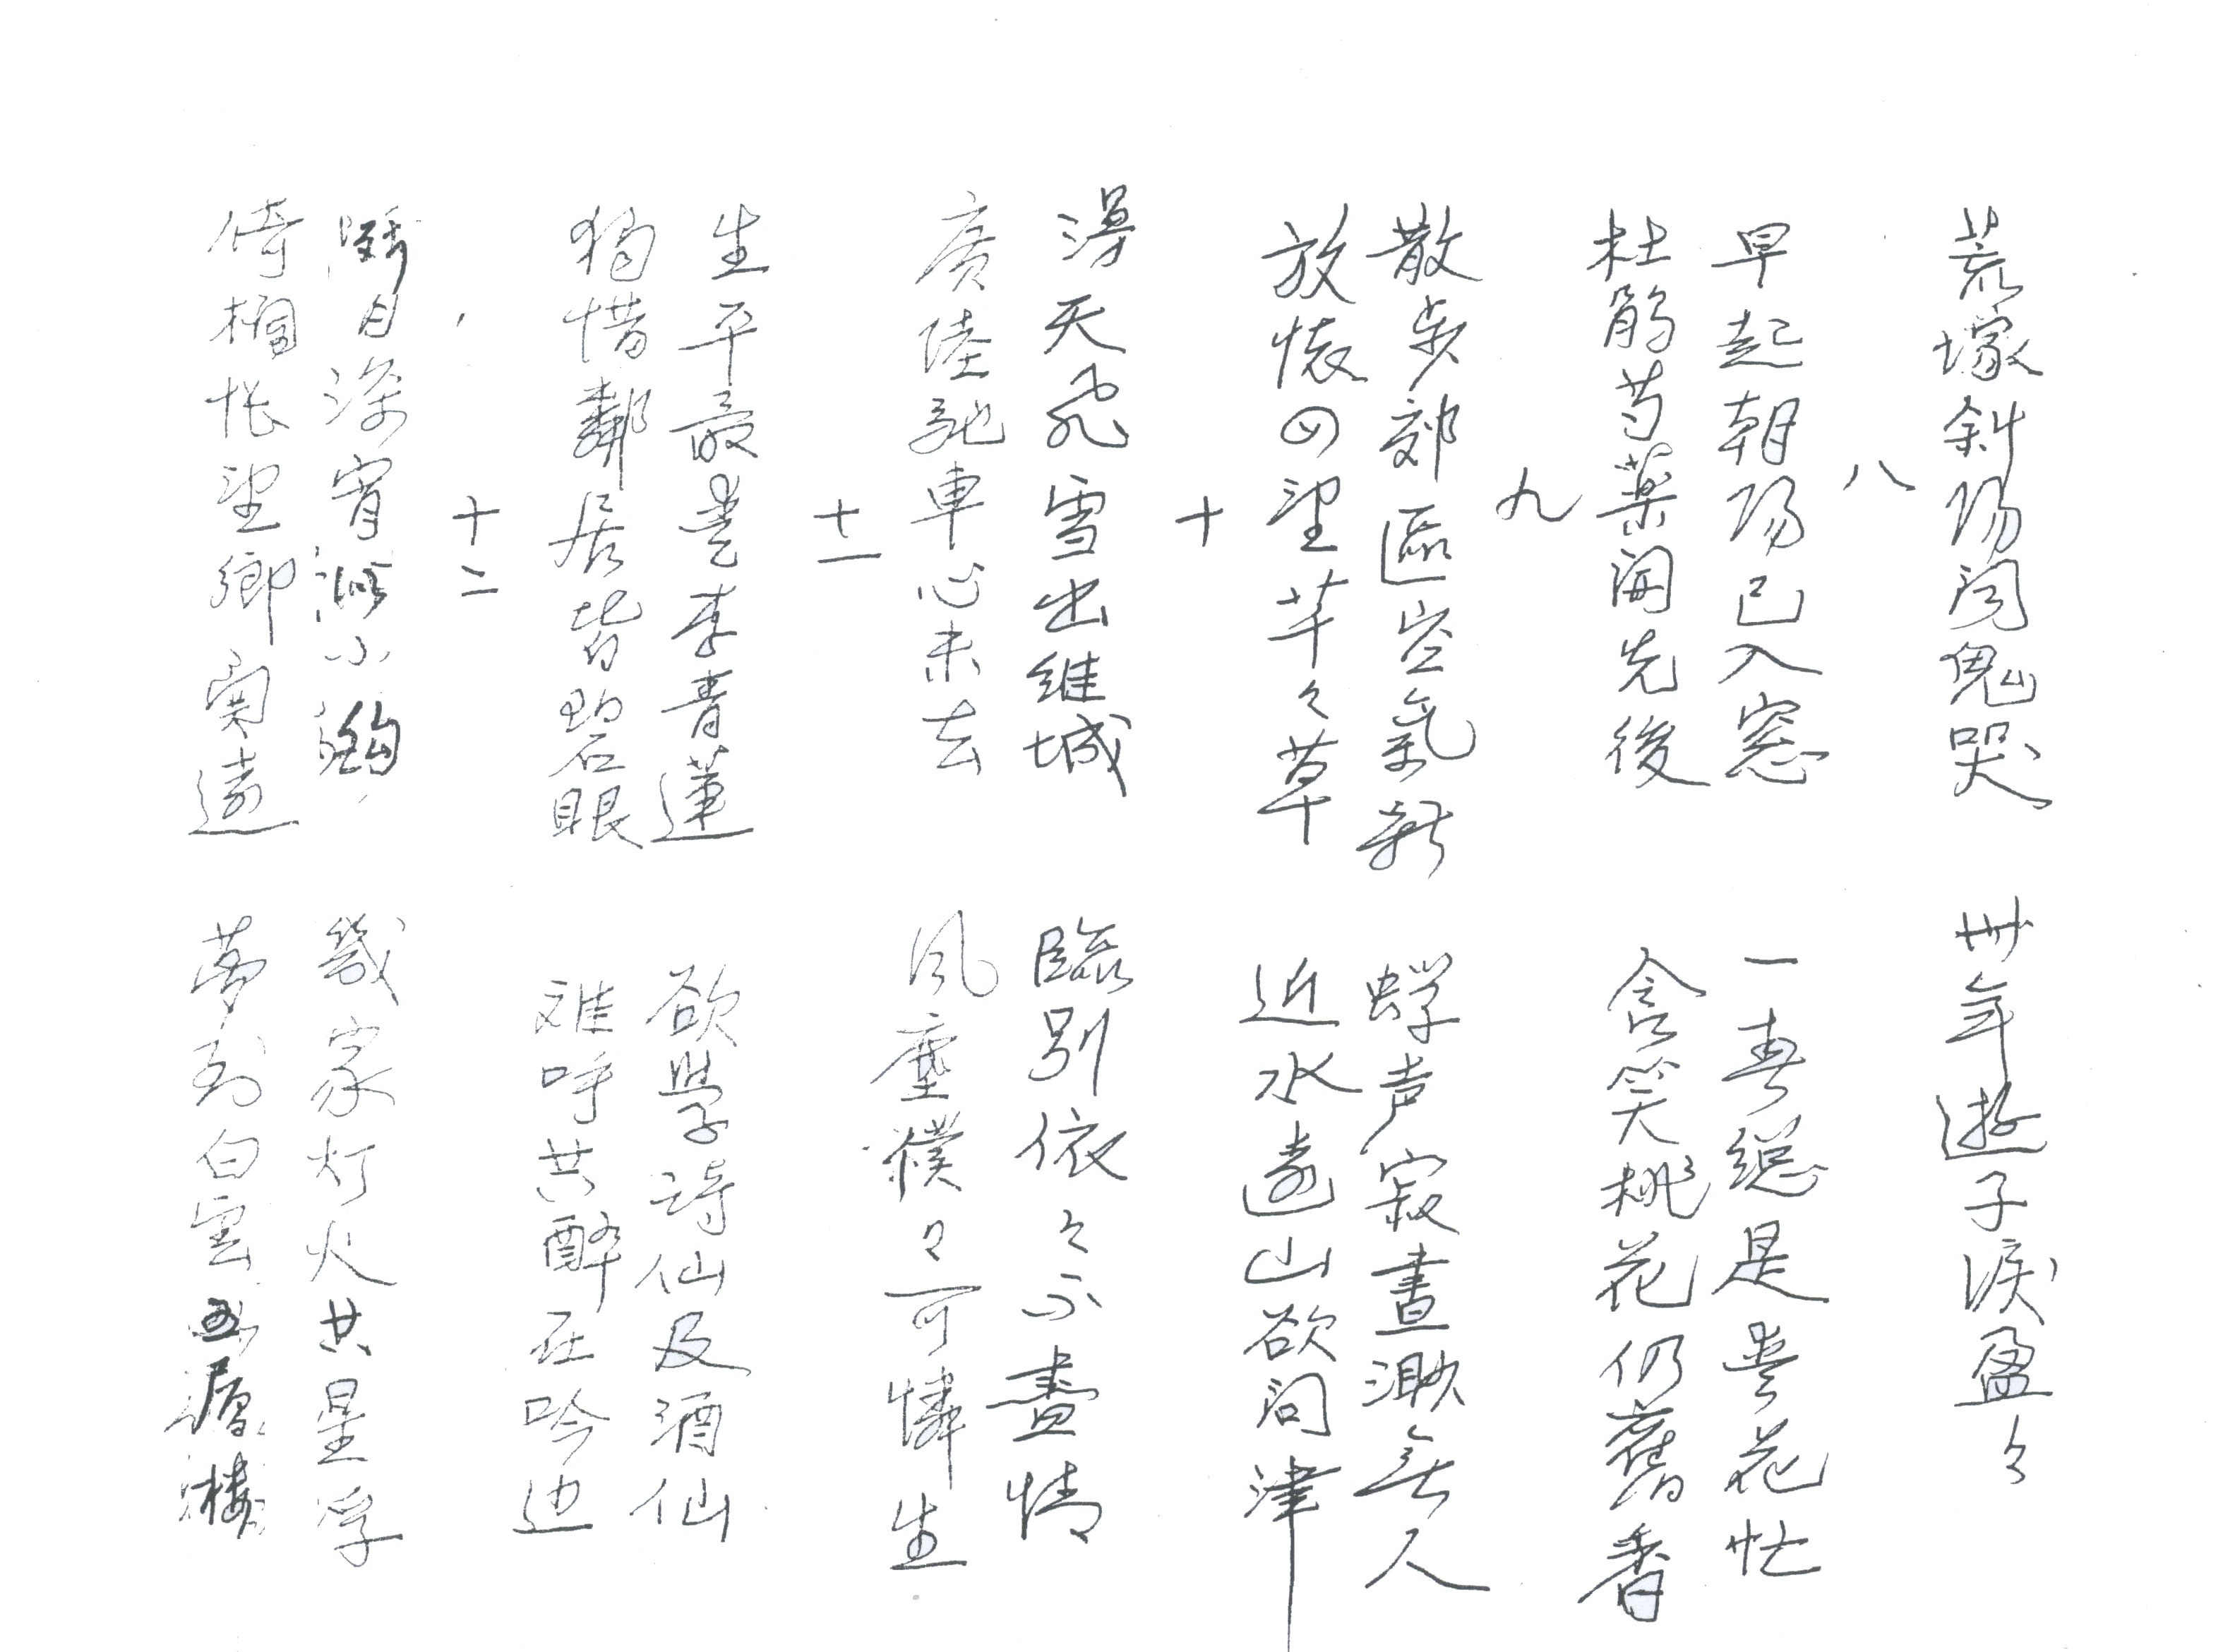 荒塚斜陽闻鬼哭 卅年遊子淚盈々
八
早起朝陽已入窓 一春總是為花忙
杜鹃芍薬開先後 含笑桃花仍舊香
九
散步郊區空氣新 蟬声寂晝渺無人
放懷四望芊々草 近水遠山欲问津
十
漫天飛雪出維城 臨別依々不盡情
廣陸馳車心未去 风塵濮々可憐生
十一
生平最愛李青蓮 欲學詩仙及酒仙
独惜鄰居皆碧眼 难呼共醉在吟边
十二
月深宵小 幾家灯火共星浮
倚欄悵望鄉関遠 夢到白雲